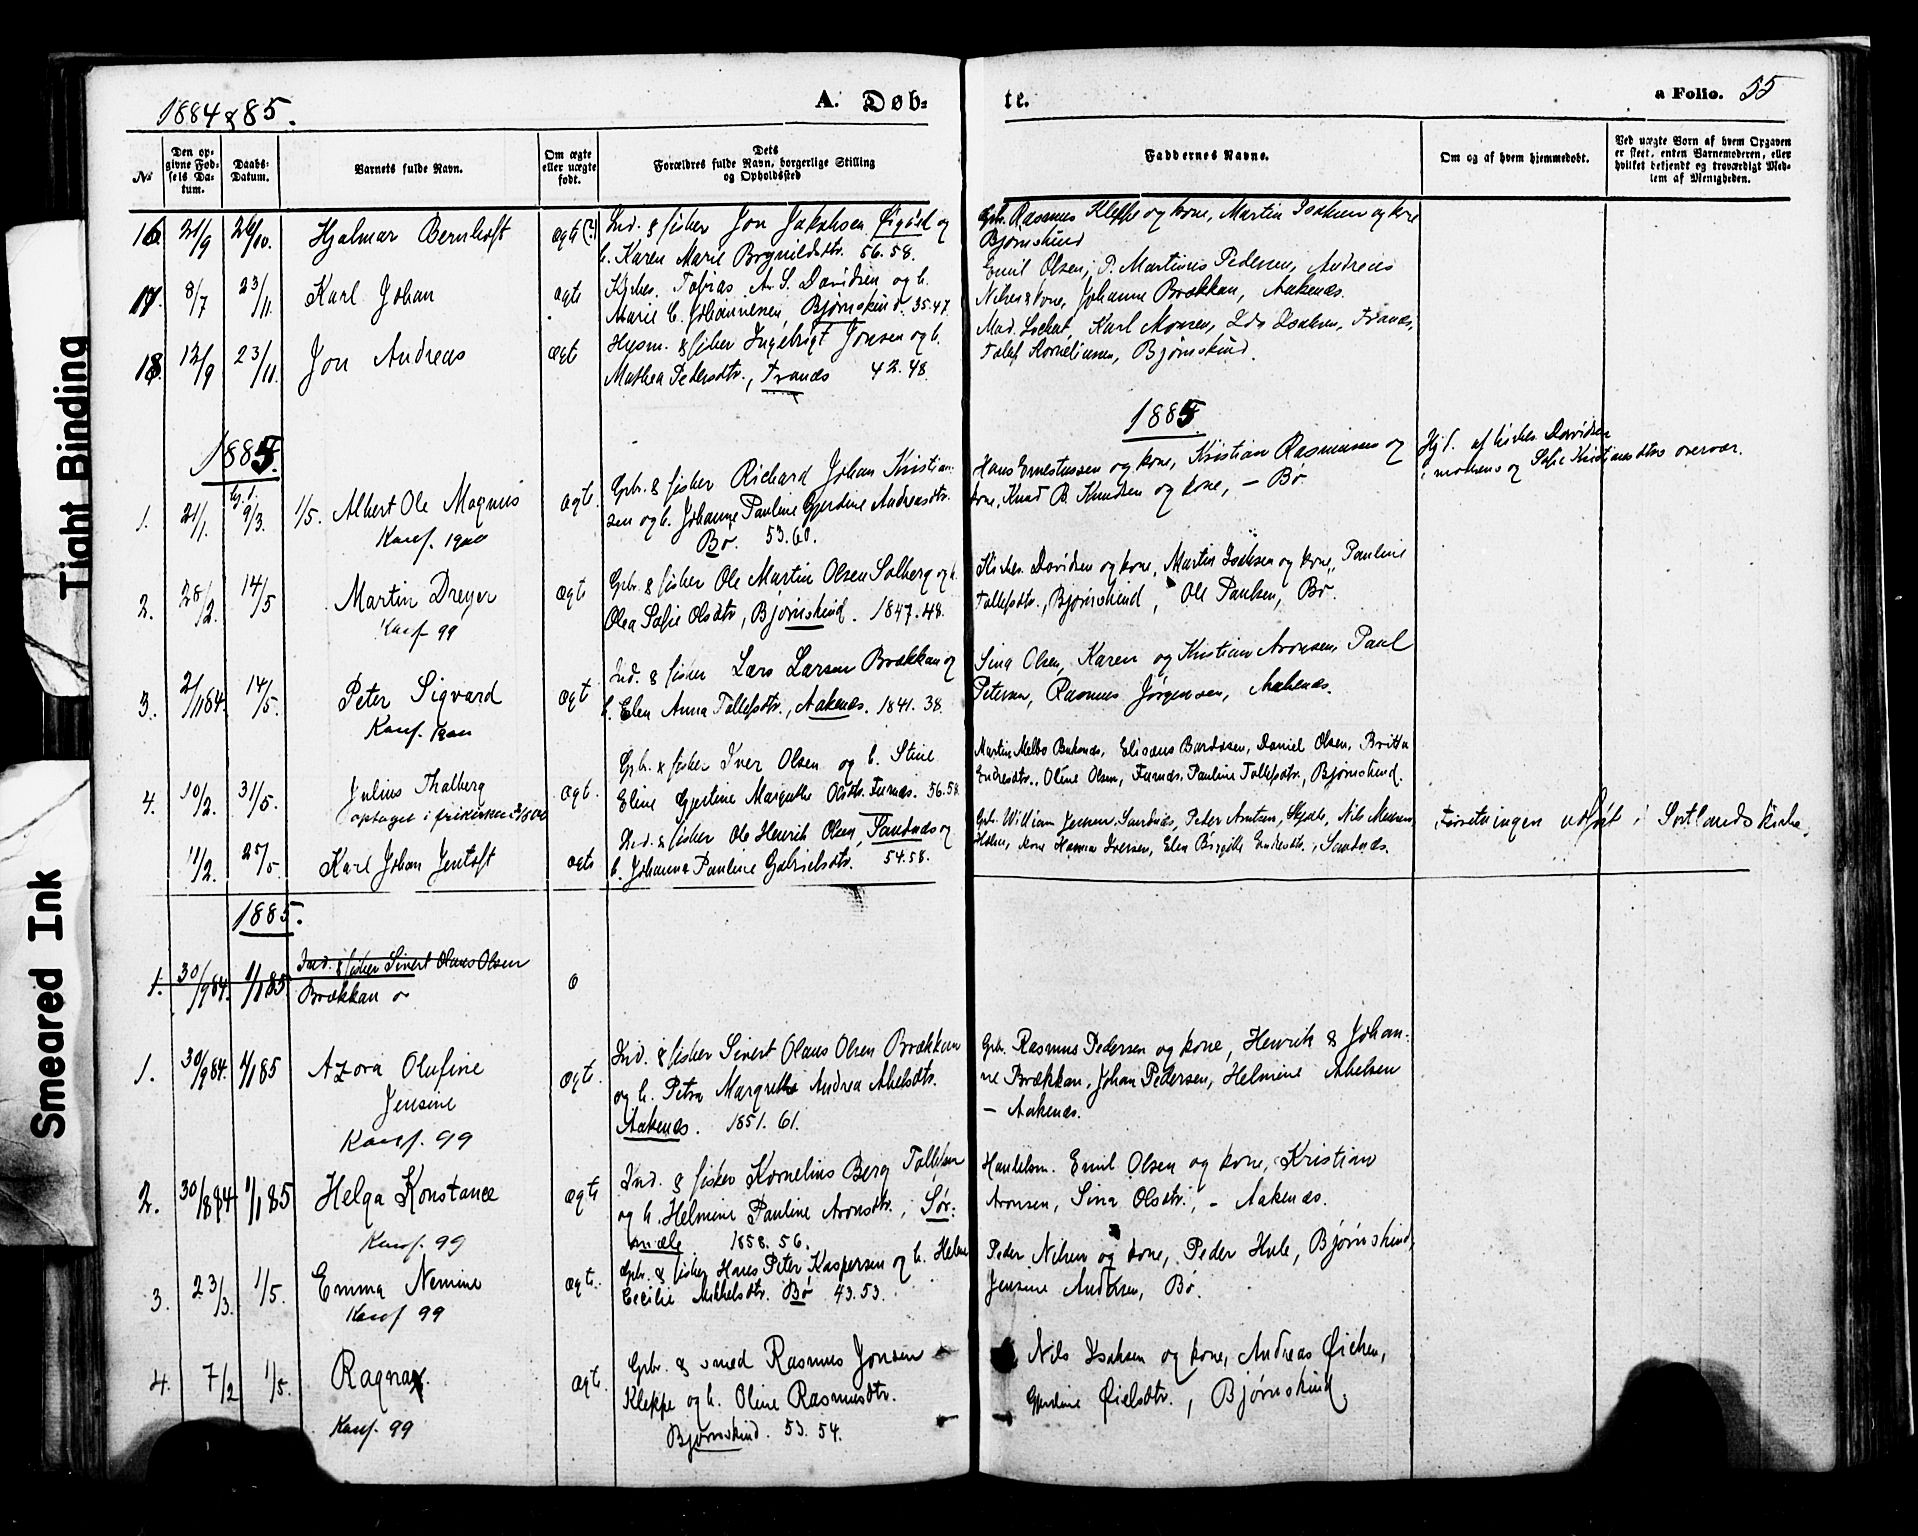 1884 & 85.
A. Døb-
te.
a Folio. 55
No
Den opgivne Fødsels Datum.
Daabs-Datum.
Barnets fulde Navn.
Om ægte eller uægte født.
Dets Forældres fulde Navn, borgerlige Stilling og Opholdssted
Faddernes Navne.
Om og af hvem hjemmedøbt.
Ved uægte Børn af hvem Opgaven er skeet, enten Barnemoderen, eller hvilket bekjendt og troværdigt Medlem af Menigheden.
16 21/9 26/10. Hjalmar Bernhoft ægte
Ind. & fisker Jon Jakobsen og
h. Karen Marie 56. 58.
Gbr. Rasmus Kleppe og kone, Martin Isaksen og kone
Bjørnskind
17. 8/7 23/11 Karl Johan ægte
Tobias A. S. Davidsen og h.
Marie C. Johannesen, Bjørnskind. 35. 47
Emil Olsen, P. Martinus Pedersen, Andreas
Nilsen & kone, Johanne Brækkan, Aakenæs.
18. 12/9 23/11. Jon Andreas ægte
Husm. & fisker Ingebrigt Jonsen og h.
Mathea Pedersdtr., Franæs 42. 48.
Mad. Karl Monsen, Isaksen, Franæs,
Tolef Korneliussen, Bjørnskind.
1885
1885.
1. 21/1. 9/3. 1/5. Albert Ole Magnus ægte
Konf. 1900
Gbr. & fisker Richard Johan Kristian-
sen og h. Johanne Pauline Gjerdine Andreasdtr.
Bø. 53. 60.
Hans Ernestussen og kone, Kristian Rasmussen og
kone, Knud B. Knudsen og kone, – Bø
Hjd. af kirkes. Davidsen
i moderens og Sofie Kristiansdtrs overvær.
2. 28/2. 14/5 Martin Dreyer ægte
Konf 99
Gbr. & fisker Ole Martin Olsen Solberg og h.
Olea Sofie Olsdtr, Bjørnskind. 1847. 48.
Kirkes. Davidsen og kone, Martin Isaksen og kone, Pauline
Tollefsdtr., Bjørnskind, Ole Paulsen, Bø.
3. 2/11 84. 14/5. Peter Sigvard ægt
Konf. 1900
Ind. & fisker Lars Larsen Brækkan og
h. Elen Anna Tollefsdtr., Aakenæs. 1841. 38.
Sina Olsen, Karen og Kristian Aronsen, Paul
Petersen, Rasmus Jørgensen, Aakenæs.
4. 10/2. 31/5. Julius Thalberg ægt.
optaget i frikirken
Gbr. & fisker Iver Olsen og h. Stine
Eline Gjertine Margrethe Olsdtr. Furnæs. 56. 58
Martin Melbo Buknæs, Elisæus Bardosen, Daniel Olsen, Britta
Endresdtr., Oline Olsen, Furnæs, Pauline Tollefsdtr., Bjørnskind.
11/2. 25/5. Karl Johan Jentoft ægte
Ind. & fisker Ole Henrik Olsen, Sandnæs og
h. Johanna Pauline Gabrielsdtr. 54. 58.
Gbr. William Jensen, Sandnæs, Peter Arntsen, Nils Monsen
Holmen, kone Hanna Iversen, Elen Birgitte Endresdtr., Sandnæs.
Forretningen udført i Sortlands kirke.
1885.
1. 30/9 84. 1/1 85 Ind. & fisker Sivert Olaus Olsen
Brækkan
1. 30/9 84. 1/1 85 Azora Olufine ægt.
Jensine
Konf. 99
Ind. & fisker Sivert Olaus Olsen Brækkan
og h. Petra Margrethe Andrea Abelsdtr.
Aakenæs. 1851. 61.
Gbr. Rasmus Pedersen og kone, Henrik & Johan-
ne Brækkan, Johan Pedersen, Helmine Abelsen
– Aakenæs.
2. 30/8 84 1/1 85 Helga Konstance ægte
Konf. 99
Ind. & fisker Kornelius Berg Tollefsen
og h. Helmine Pauline Aronsdtr., Sør-
mæle 1858. 56.
Handelsm. Emil Olsen og kone, Kristian
Aronsen, Sina Olsdtr., – Aakenæs.
3. 23/3. 1/5. Emma Nemine ægte.
Konf 99
Gbr. & fisker Hans Peter Kaspersen og h. Helene
Cecilie Mikkelsdtr. Bø 43. 53.
Peder Nilsen og kone, Peder Hule, Bjørnskind,
Jensine Andersen, Bø.
4. 7/2 1/5. Ragna. ægt.
Konf. 99
Gbr. & smed Rasmus Jonsen
Kleppe og h. Oline Rasmusdtr.
Bjørnskind. 53. 54.
Nils Isaksen og kone, Andreas
Gjerdine, Bjørnskind.
Tight Binding
Smeared Ink